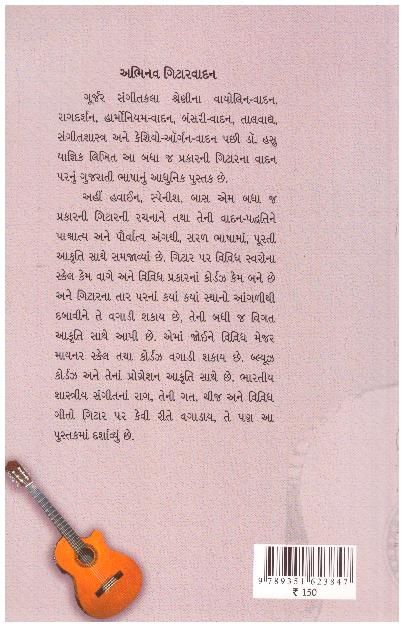 અભિનવ ગિટારવાદન
ગૂર્જર સંગીતકલા શ્રેણીના વાયોલિન-વાદન,
રાગદર્શન, હાર્મોનિયમ-વાદન, બંસરી-વાદન, તાલવાદ્ય,
સંગીતશાસ્ત્ર અને કેશિયો-ઑર્ગન-વાદન પછી ડૉ. હસુ
યાજ્ઞિક લિખિત આ બધા જ પ્રકારની ગિટારના વાદન
પરનું ગુજરાતી ભાષાનું આધુનિક પુસ્તક છે.
અહીં હવાઈન, સ્પેનીશ, બાસ એમ બધા જ
પ્રકારની ગિટારની રચનાને તથા તેની વાદન-પદ્ધતિને
પાશ્ચાત્ય અને પૌર્વાત્ય અંગથી, સરળ ભાષામાં, પૂરતી
આકૃતિ સાથે સમજાવ્યાં છે. ગિટાર પર વિવિધ સ્વરોના
સ્કેલ કેમ વાગે અને વિવિધ પ્રકારનાં કૉર્ડઝ કેમ બને છે
અને ગિટારના તાર પરનાં કયાં કયાં સ્થાનો આંગળીથી
દબાવીને તે વગાડી શકાય છે, તેની બધી જ વિગત
આકૃતિ સાથે આપી છે. એમાં જોઈને વિવિધ મેજર
માયનર સ્કેલ તથા કૉર્ડઝ વગાડી શકાય છે. બ્લ્યૂઝ
કૉર્ડઝ અને તેનાં પ્રોગ્રેશન આકૃતિ સાથે છે. ભારતીય
શાસ્ત્રીય સંગીતનાં રાગ, તેની ગત, ચીજ અને વિવિધ
ગીતો ગિટાર પર કેવી રીતે વગાડાય, તે પણ આ
પુસ્તકમાં દર્શાવ્યું છે.
9 789351 623847
₹ 150